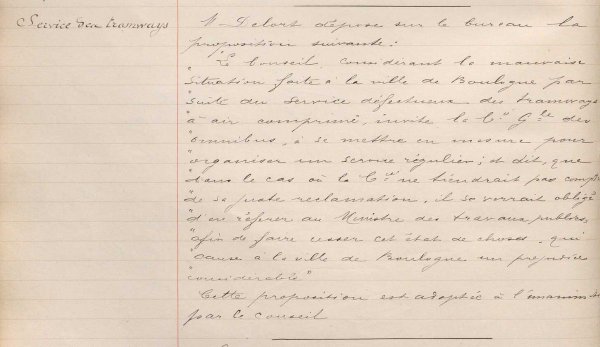 Service des tramways
Mr Delort dépose sur le bureau la
proposition suivante :
"Le Conseil, considérant la mauvaise
"situation faite à la ville de Boulogne par
"suite du service défectueux des tramways
"à air comprimé, invite la Cie Gle des
"omnibus, à se mettre en mesure pour
"organiser un service régulier ; et dit, que
"dans le cas où la Cie ne tiendrait pas compte
"de sa juste réclamation, il se verrait obligé
"d'en référer au Ministre des travaux publics,
"afin de faire cesser cet état de choses, qui
"cause à la ville de Boulogne un préjudice
"considérable"
Cette proposition est adoptée à l'unanimité
par le Conseil